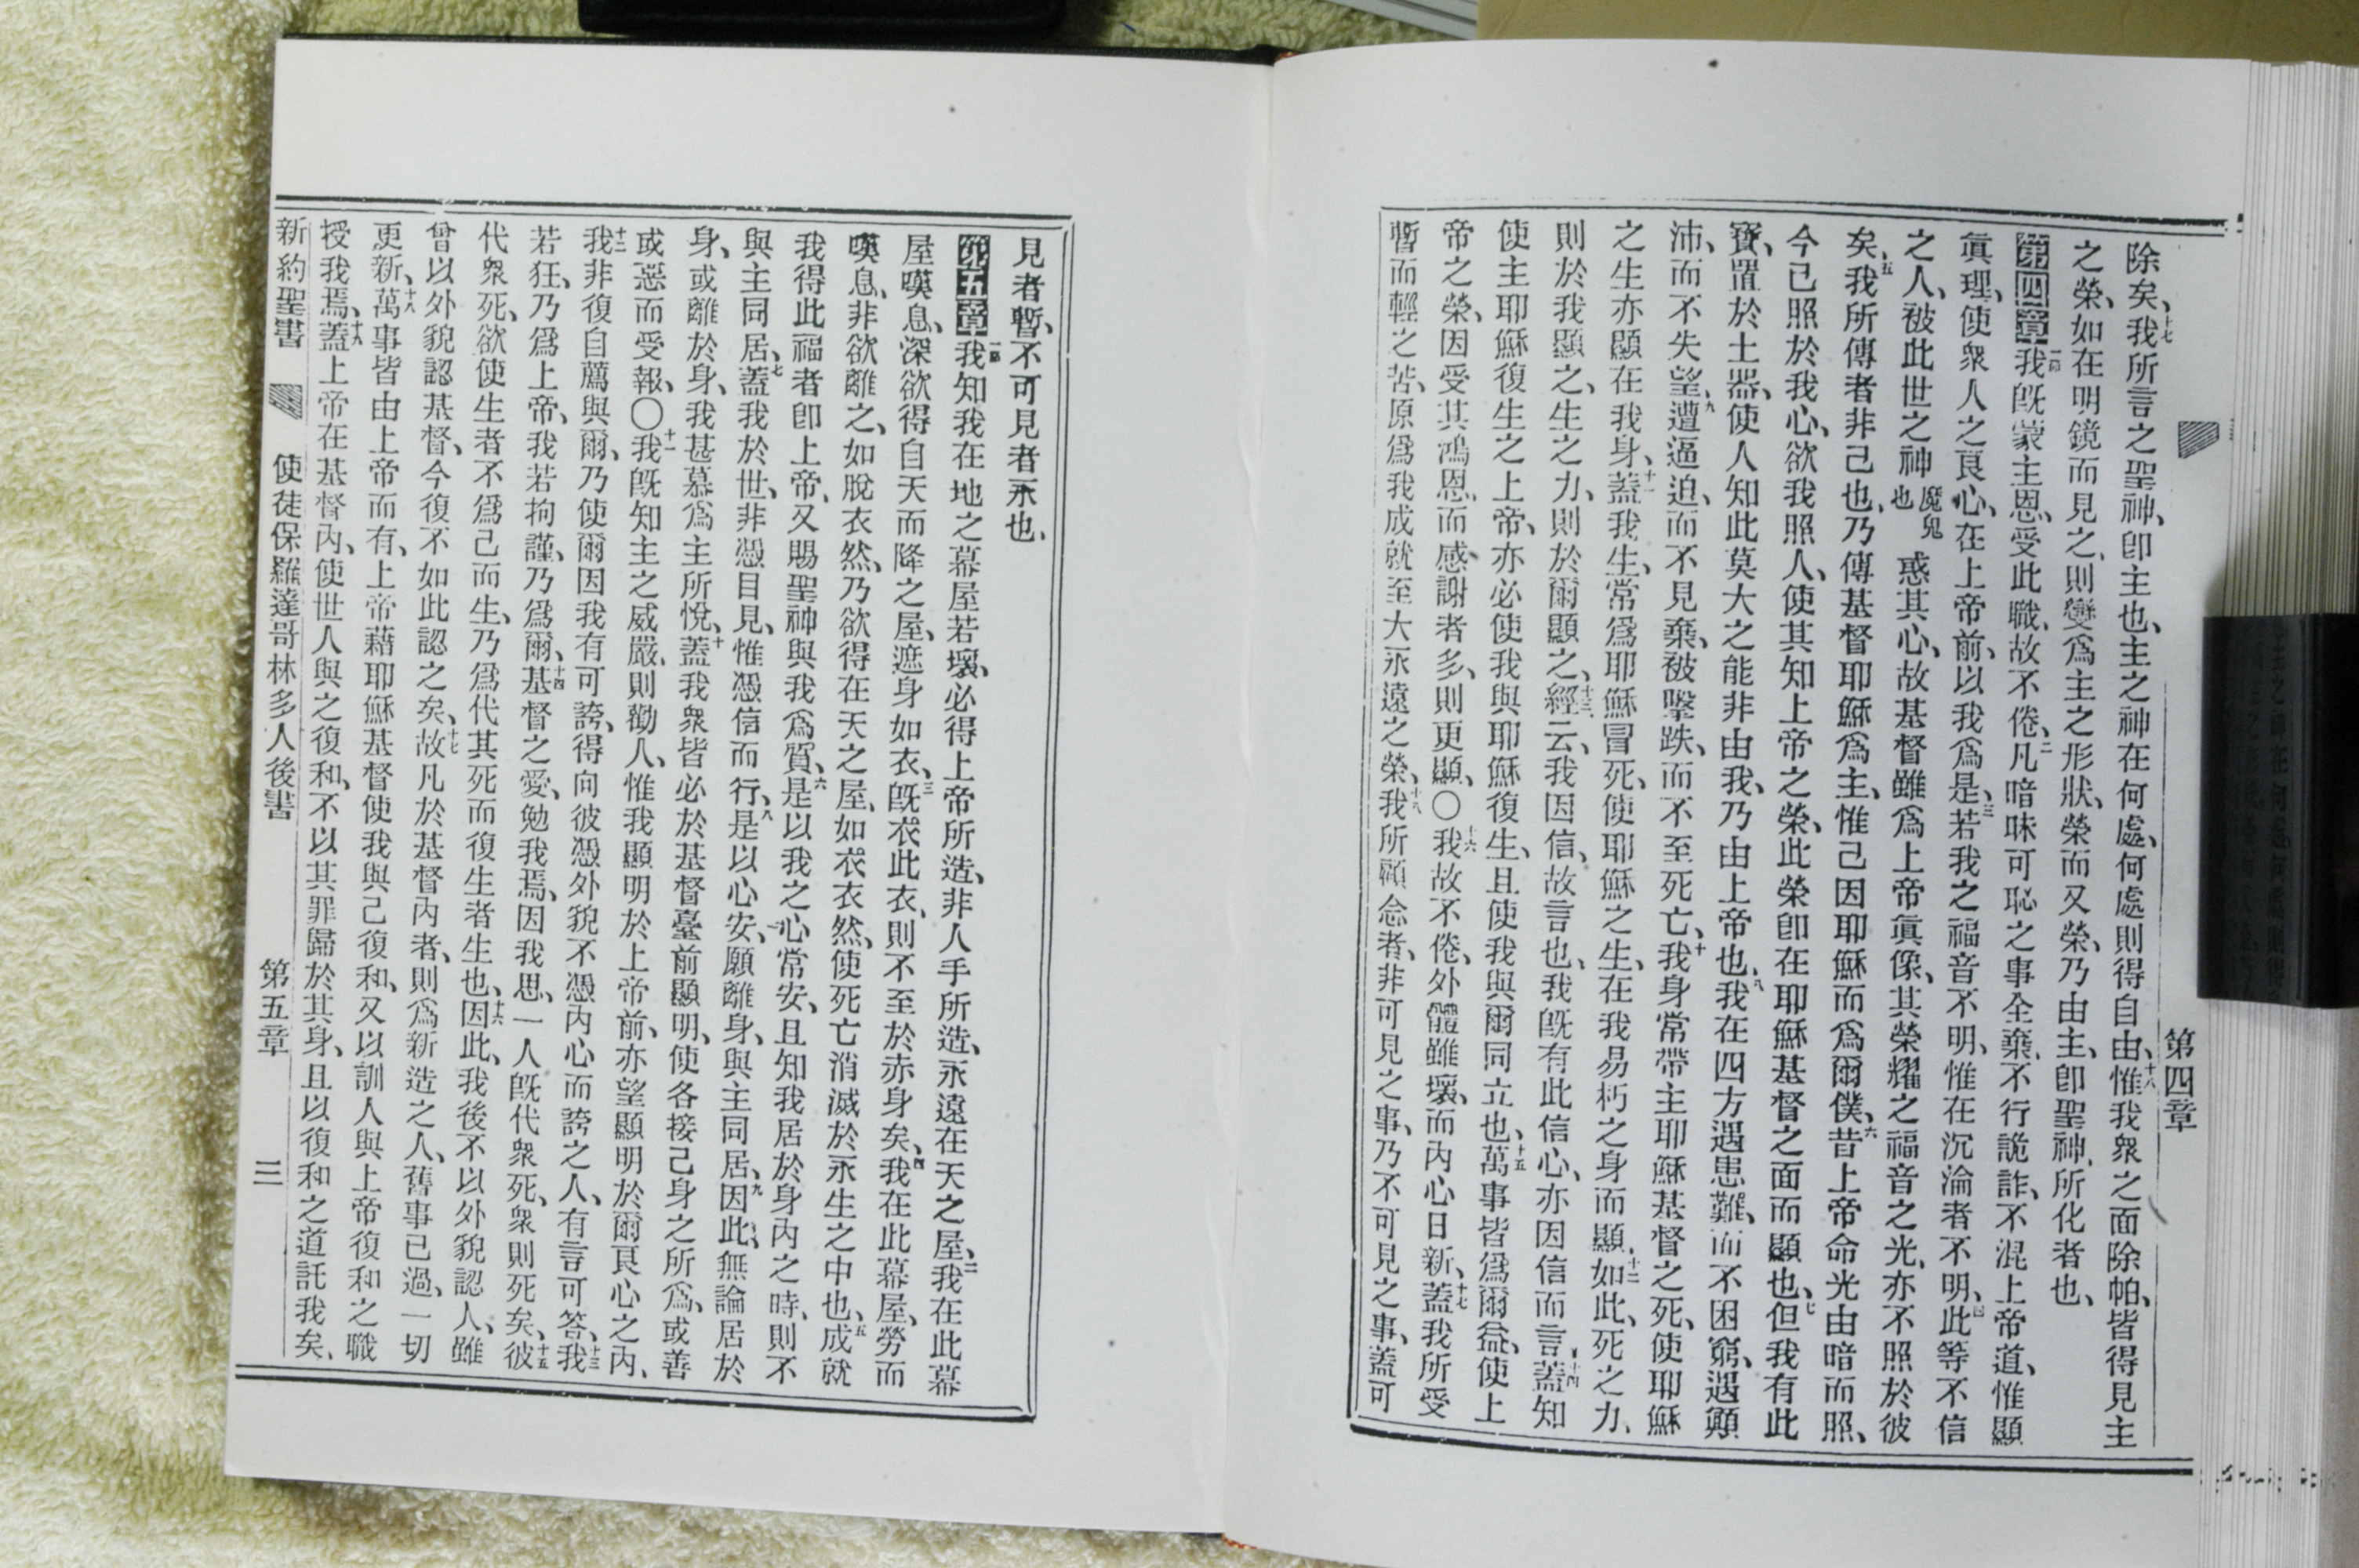 第四章
除矣、十七我所言之聖神、卽主也、主之神在何處、何處則得自由、十八惟我衆之面除帕、皆得見主
之榮、如在明鏡而見之、則變爲主之形狀、榮而又榮、乃由主、卽聖神、所化者也、
第四章一節我旣蒙主恩、受此職、故不倦、二凡暗昧可恥之事全棄、不行詭詐、不混上帝道、惟顯
眞理、使衆人之良心、在上帝前、以我爲是、三若我之福音不明、惟在沉淪者不明、四此等不信
之人、被此世之神魔鬼也惑其心、故基督雖爲上帝眞像、其榮耀之福音之光、亦不照於彼
矣、五我所傳者非己也、乃傳基督耶穌爲主、惟己因耶穌而爲爾僕、六昔上帝命光由暗而照、
今已照於我心、欲我照人、使其知上帝之榮、此榮卽在耶穌基督之面而顯也、七但我有此
寶、置於土器、使人知此莫大之能非由我、乃由上帝也、八我在四方遇患難、而不困窮、遇顚
沛、而不失望、九遭逼迫、而不見棄、被擊跌、而不至死亡、十我身常帶主耶穌基督之死、使耶穌
之生亦顯在我身、十一蓋我生、常爲耶穌冒死、使耶穌之生、在我易朽之身而顯、十二如此、死之力、
則於我顯之、生之力、則於爾顯之、十三經云、我因信、故言也、我旣有此信心、亦因信而言、十四蓋知
使主耶穌復生之上帝、亦必使我與耶穌復生、且使我與爾同立也、十五萬事皆爲爾益、使上
帝之榮、因受其鴻恩、而感謝者多、則更顯、〇十六我故不倦、外體雖壞、而內心日新、十七蓋我所受
暫而輕之苦、原爲我成就至大永遠之榮、十八我所願念者、非可見之事、乃不可見之事、蓋可
見者暫、不可見者永也、
第五章一節我知我在地之幕屋若壞、必得上帝所造、非人手所造、永遠在天之屋、二我在此幕
屋嘆息、深欲得自天而降之屋、遮身如衣、三旣衣此衣、則不至於赤身矣、四我在此幕屋、勞而
嘆息、非欲離之、如脫衣然、乃欲得在天之屋、如衣衣然、使死亡消滅於永生之中也、五成就
我得此福者卽上帝、又賜聖神與我爲質、六是以我之心常安、且知我居於身內之時、則不
與主同居、七蓋我於世、非憑目見、惟憑信而行、八是以心安、願離身、與主同居、九因此、無論居於
身、或離於身、我甚慕爲主所悅、十蓋我衆皆必於基督臺前顯明、使各接己身之所爲、或善
或惡而受報、〇十一我旣知主之威嚴、則勸人、惟我顯明於上帝前、亦望顯明於爾良心之內、
十二我非復自薦與爾、乃使爾因我有可誇、得向彼憑外貌不憑內心而誇之人、有言可答、十三我
若狂、乃爲上帝、我若拘謹、乃爲爾、十四基督之愛、勉我焉、因我思、一人旣代衆死、衆則死矣、十五彼
代衆死、欲使生者不爲己而生、乃爲代其死而復生者生也、十六因此、我後不以外貌認人、雖
曾以外貌認基督、今復不如此認之矣、十七故凡於基督內者、則爲新造之人、舊事已過、一切
更新、十八萬事皆由上帝而有、上帝藉耶穌基督使我與己復和、又以訓人與上帝復和之職
授我焉、十九蓋上帝在基督內、使世人與之復和、不以其罪歸於其身、且以復和之道託我矣、
新約聖書 使徒保羅達哥林多人後書 第五章 三